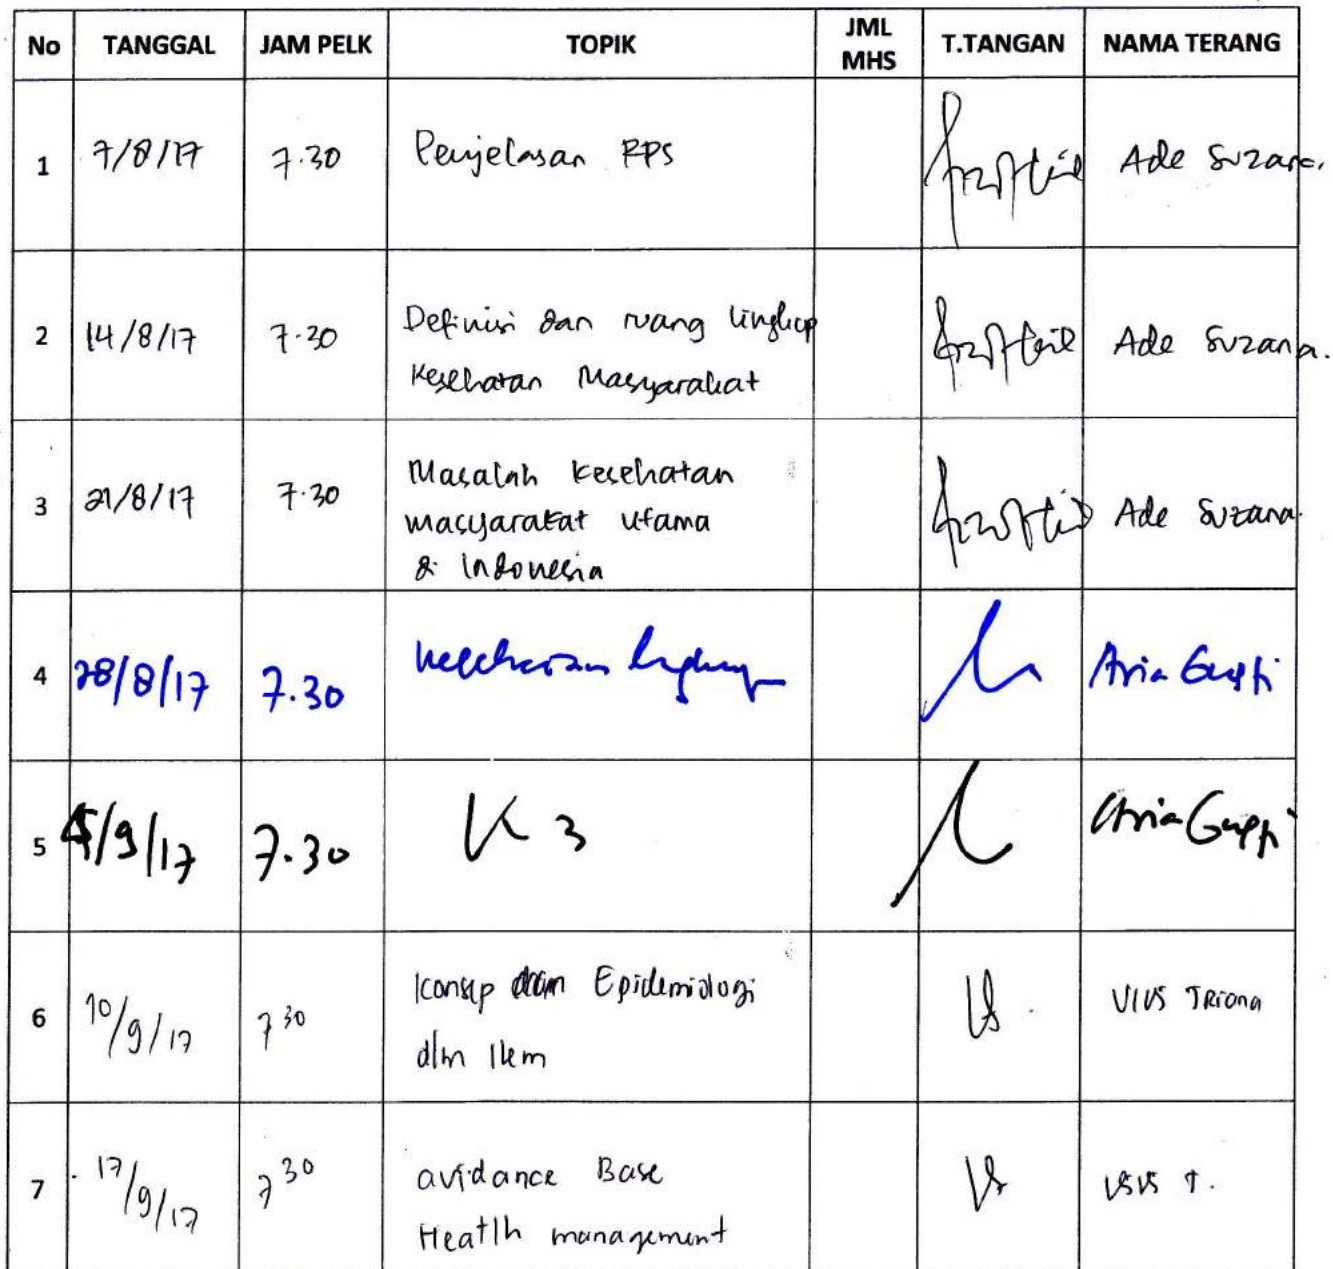 No TANGGAL JAM PELK TOPIK JML MHS T.TANGAN NAMA TERANG
1 7/8/17 7.30 Penjelasan RPS Ade Suzana.
2 14/8/17 7.30 Definisi dan ruang lingkup Ade Suzana.
Kesehatan Masyarakat
3 21/8/17 7.30 Masalah kesehatan Ade Suzana.
masyarakat utama
& Indonesia
4 28/8/17 7.30 Kesehatan lingkungan Aria Gusti
5 /9/17 7.30 K3 Aria Gusti
6 10/9/17 7 30 Konsep Epidemiologi VIVS TRiana
dlm Ikm
7 17/9/17 7 30 avidance Base VIVS T.
Heatlh management